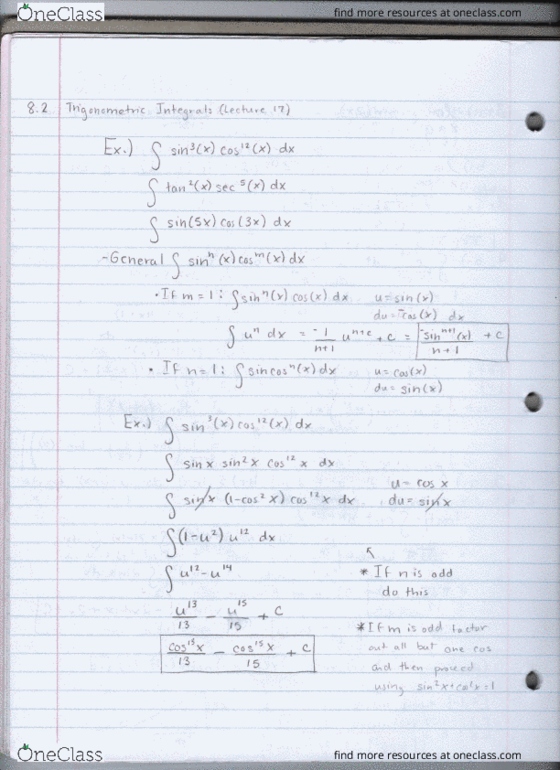 OneClass
find more resources at oneclass.com
8.2 Trigonometric Integrals (Lecture 17)
Ex.) ∫ sin³(x) cos¹²(x) dx
∫ tan²(x) sec⁵(x) dx
∫ sin(5x) cos(3x) dx
-General ∫ sinⁿ(x) cosᵐ(x) dx
• If m = 1 : ∫ sinⁿ(x) cos(x) dx u = sin(x)
du = -cos(x) dx
∫ uⁿ dx = -1/(n+1) uⁿ⁺¹ + C = -sinⁿ⁺¹(x)/(n+1) + C
• If n = 1 : ∫ sin cosⁿ(x) dx u = cos(x)
du = sin(x)
Ex.) ∫ sin³(x) cos¹²(x) dx
∫ sin x sin² x cos¹² x dx
u = cos x
∫ sin x (1-cos² x) cos¹² x dx du = sin x
∫ (1-u²) u¹² dx
∫ u¹² - u¹⁴
* If n is odd
do this
u¹³/13 - u¹⁵/15 + C
cos¹³x/13 - cos¹⁵x/15 + C
*If m is odd factor
out all but one cos
and then proceed
using sin²x+cos²x=1
OneClass
find more resources at oneclass.com